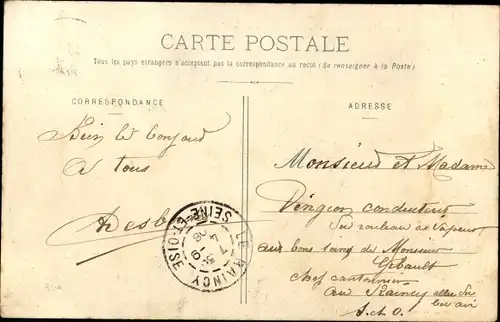 CARTE POSTALE
Tous les pays étrangers n'acceptent pas la correspondance au recto (Se renseigner à la Poste)
CORRESPONDANCE
ADRESSE
Bien le bonjour
à tous
Monsieur et Madame
conducteur
du rouleau à vapeur
aux bons soins de Monsieur
chef cantonnier
au Raincy allée du
S. et O.
LE RAINCY
SEINE-ET-OISE